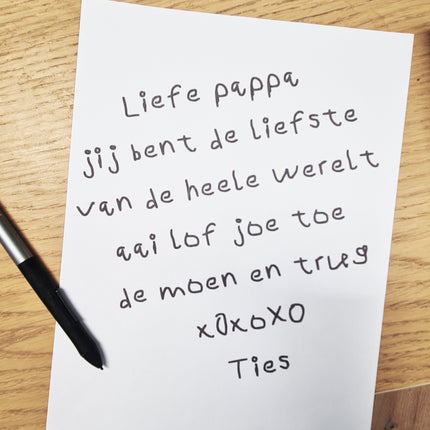 Liefe pappa
jij bent de liefste
van de heele werelt
aai lof joe toe
de moen en trug
xOxoXO
Ties